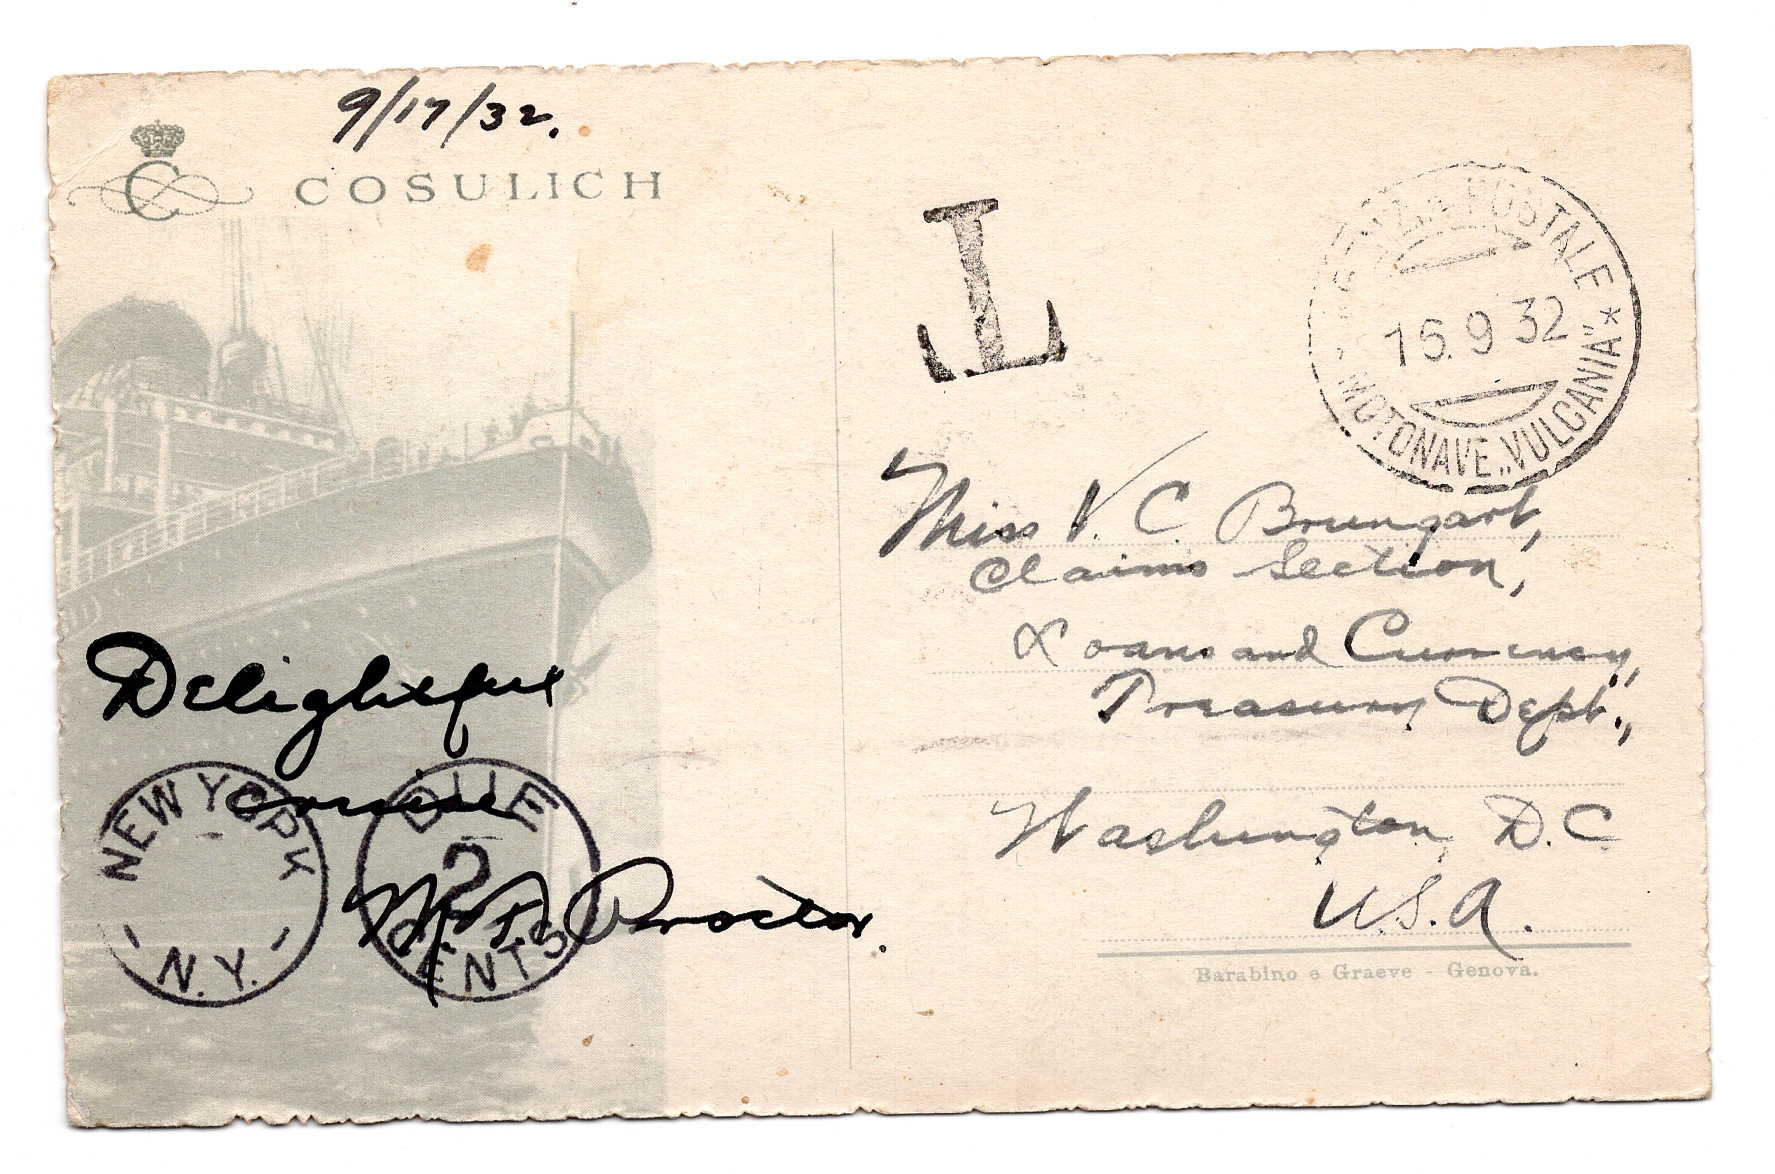 9/17/32.
C COSULICH
T
AGENZIA POSTALE
15.9 32
* MOTONAVE „VULCANIA" *
Miss V. C. Brungart,
Claims Section,
Loans and Currency,
Treasury Dept.,
Washington, D.C.
U.S.A.
Barabino e Graeve - Genova.
Delightful
cruise
Proctor.
NEW YORK
N.Y.
DUE
2
CENTS